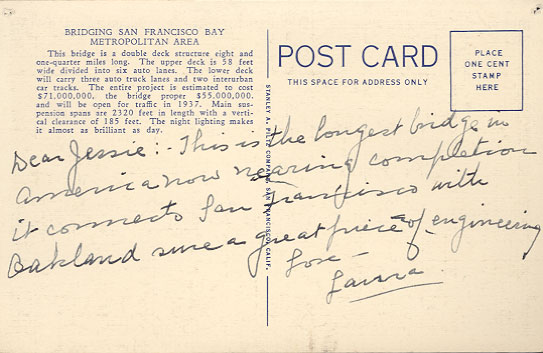 BRIDGING SAN FRANCISCO BAY
METROPOLITAN AREA
This bridge is a double deck structure eight and
one-quarter miles long. The upper deck is 58 feet
wide divided into six auto lanes. The lower deck
will carry three auto truck lanes and two interurban
car tracks. The entire project is estimated to cost
$71,000,000, the bridge proper $55,000,000,
and will be open for traffic in 1937. Main sus-
pension spans are 2320 feet in length with a verti-
cal clearance of 185 feet. The night lighting makes
it almost as brilliant as day.
POST CARD
THIS SPACE FOR ADDRESS ONLY
PLACE
ONE CENT
STAMP
HERE
STANLEY A. PILTZ COMPANY, SAN FRANCISCO, CALIF.
Dear Jessie:- This is the longest bridge in
America now nearing completion
it connects San Francisco with
Oakland sure a great piece of engineering
Love -
Laura